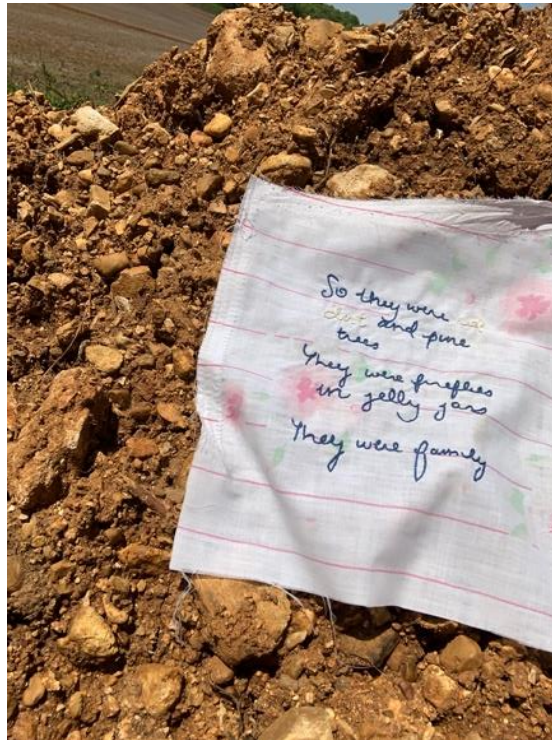 So they were
dirt and pine
trees
They were fireflies
in jelly jars
They were family